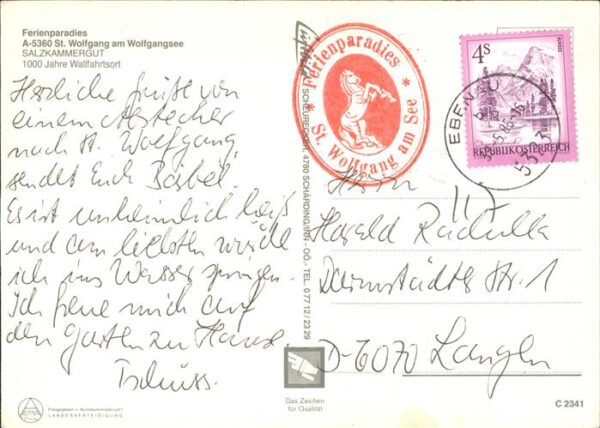 Ferienparadies
A-5360 St. Wolfgang am Wolfgangsee
SALZKAMMERGUT
1000 Jahre Wallfahrtsort
Herzliche Grüße von
einem Abstecher
nach St. Wolfgang,
sendet Euch Bärbel.
Es ist unheimlich heiß
und am liebsten würde
ich ins Wasser springen.
Ich freue mich auf
den Garten zu Hause.
Tschüss.
Freigegeben v. Bundesministerium f.
LANDESVERTEIDIGUNG
4780 SCHÄRDING/INN - OÖ. - TEL. 0 77 12 / 23 29
Das Zeichen
für Qualität
* Ferienparadies *
St. Wolfgang am See
4S
REPUBLIK ÖSTERREICH
EBENAU
5323
Herrn
Harald Radulla
Darmstädter Str. 1
D-6070 Langen
C 2341